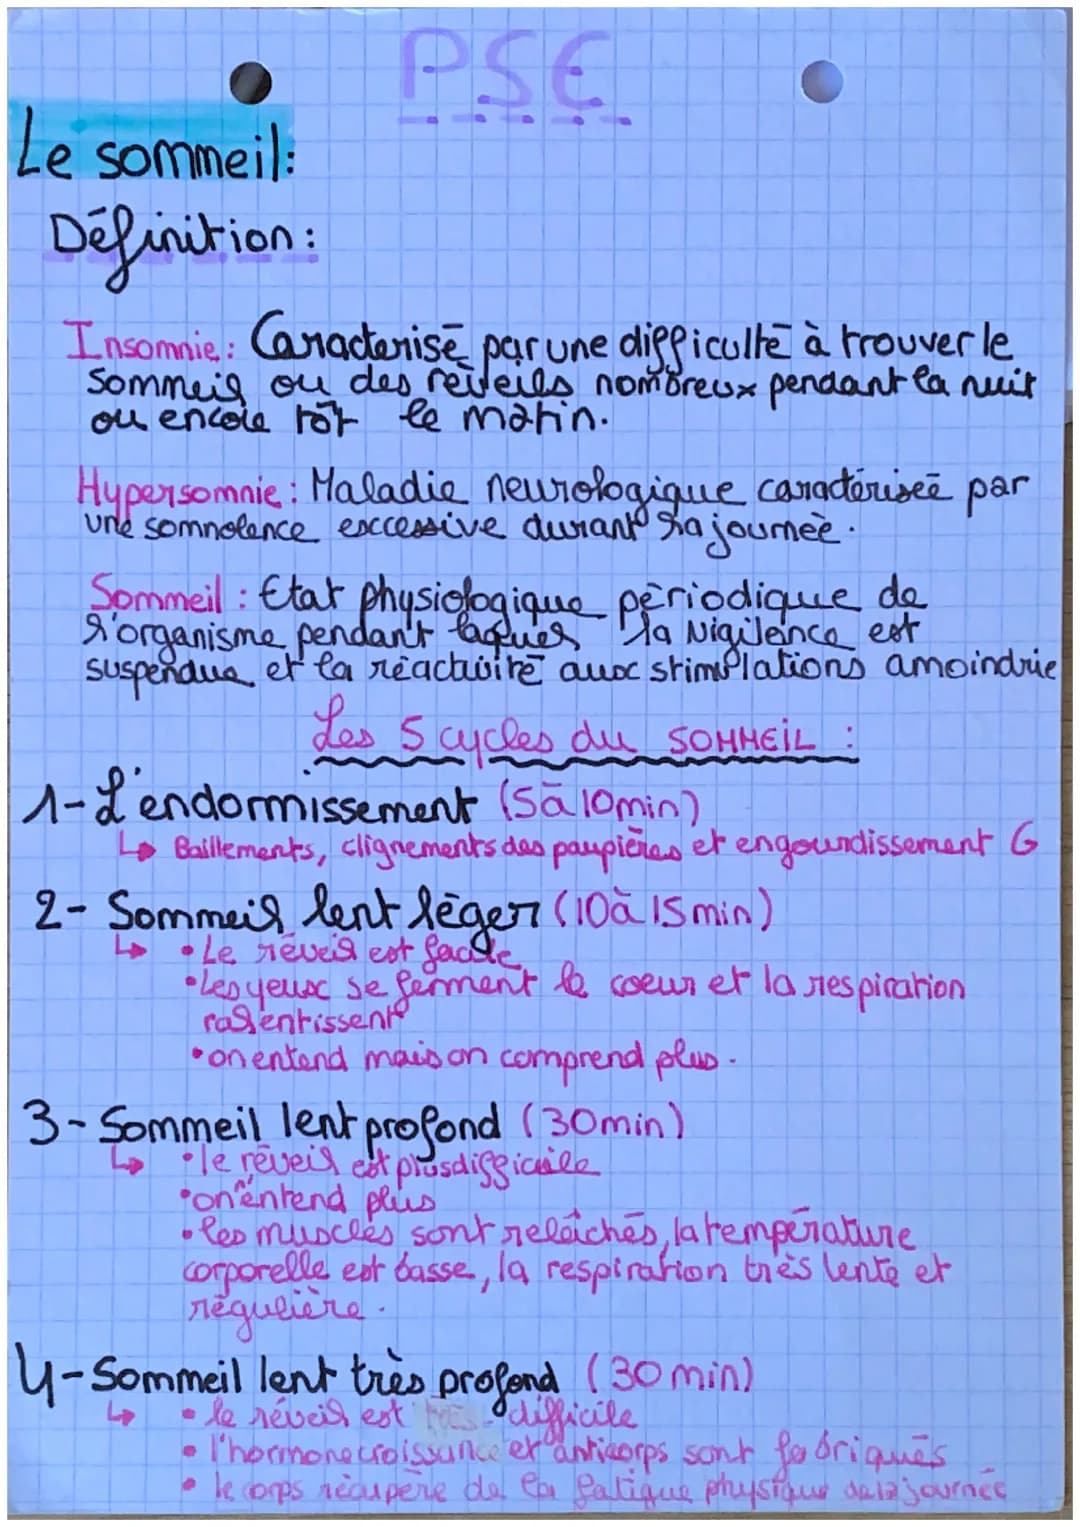 PSE
Le sommeil:
Définition:
Insomnie: Caracterisé par une difficulté à trouver le
sommeil ou des réveils nombreux pendant la nuit
ou encore tôt le matin.
Hypersomnie: Maladie neurologique caractériseé par
une somnolence excessive durant la journeè.
Sommeil: Etat physiologique pèriodique de
l'organisme pendant laques la vigilence est
suspendue et la réactivité aux stimulations amoindrie
Les 5 cycles du SOMMEIL:
1- L'endormissement (5à 10min)
↳ Baillements, clignements des paupières et engourdissement G
2- Sommeil lent léger (10à 15min)
↳ • Le réveil est facile
• Les yeux se ferment le coeur et la respiration
ralentissent
• on entend mais on comprend plus.
3- Sommeil lent profond (30min)
↳ • le réveil est plus difficile
• on entend plus
• les muscles sont relâchés, la température
corporelle est basse, la respiration très lente et
régulière.
4- Sommeil lent très profond (30 min)
↳ • le réveil est très difficile
• l'hormone croissance et anticorps sont fabriqués
• le corps récupère de la fatigue physique de la journée